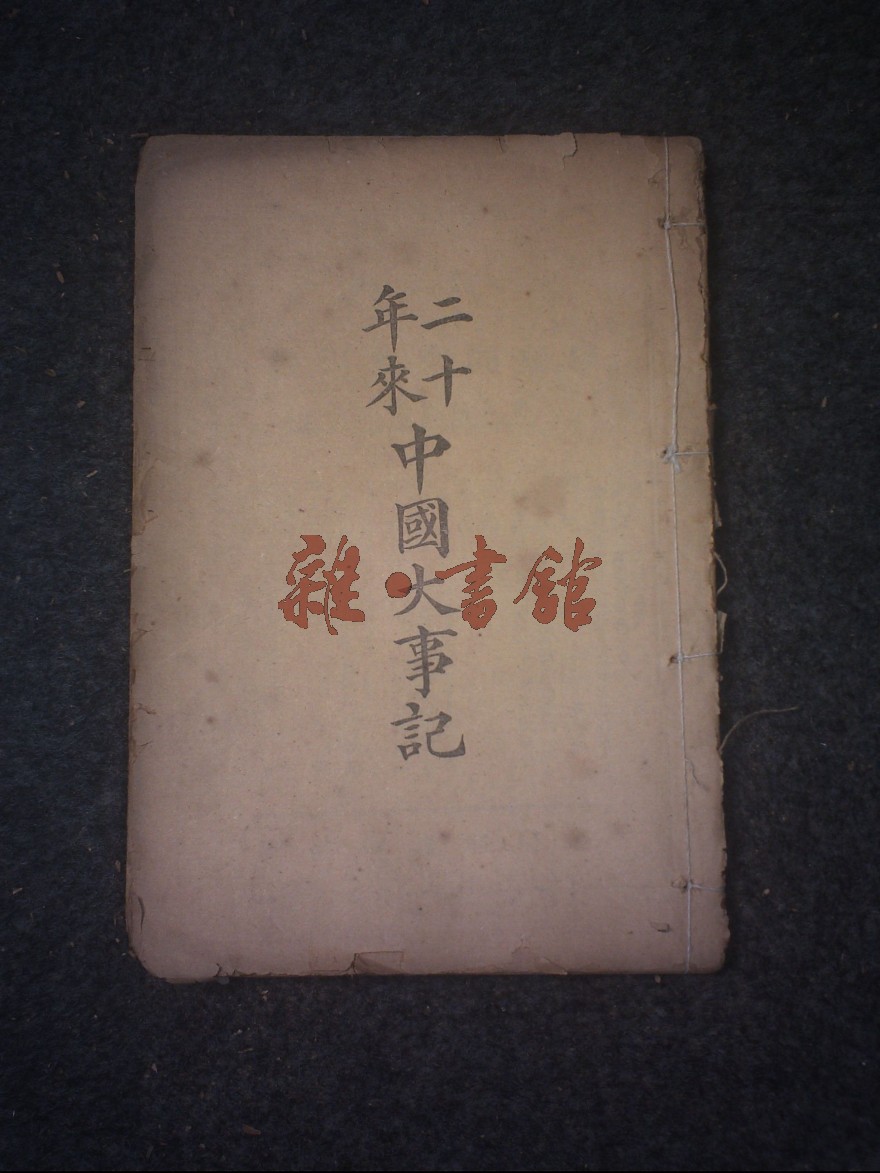 二十
年來
中國大事記
雜·書館